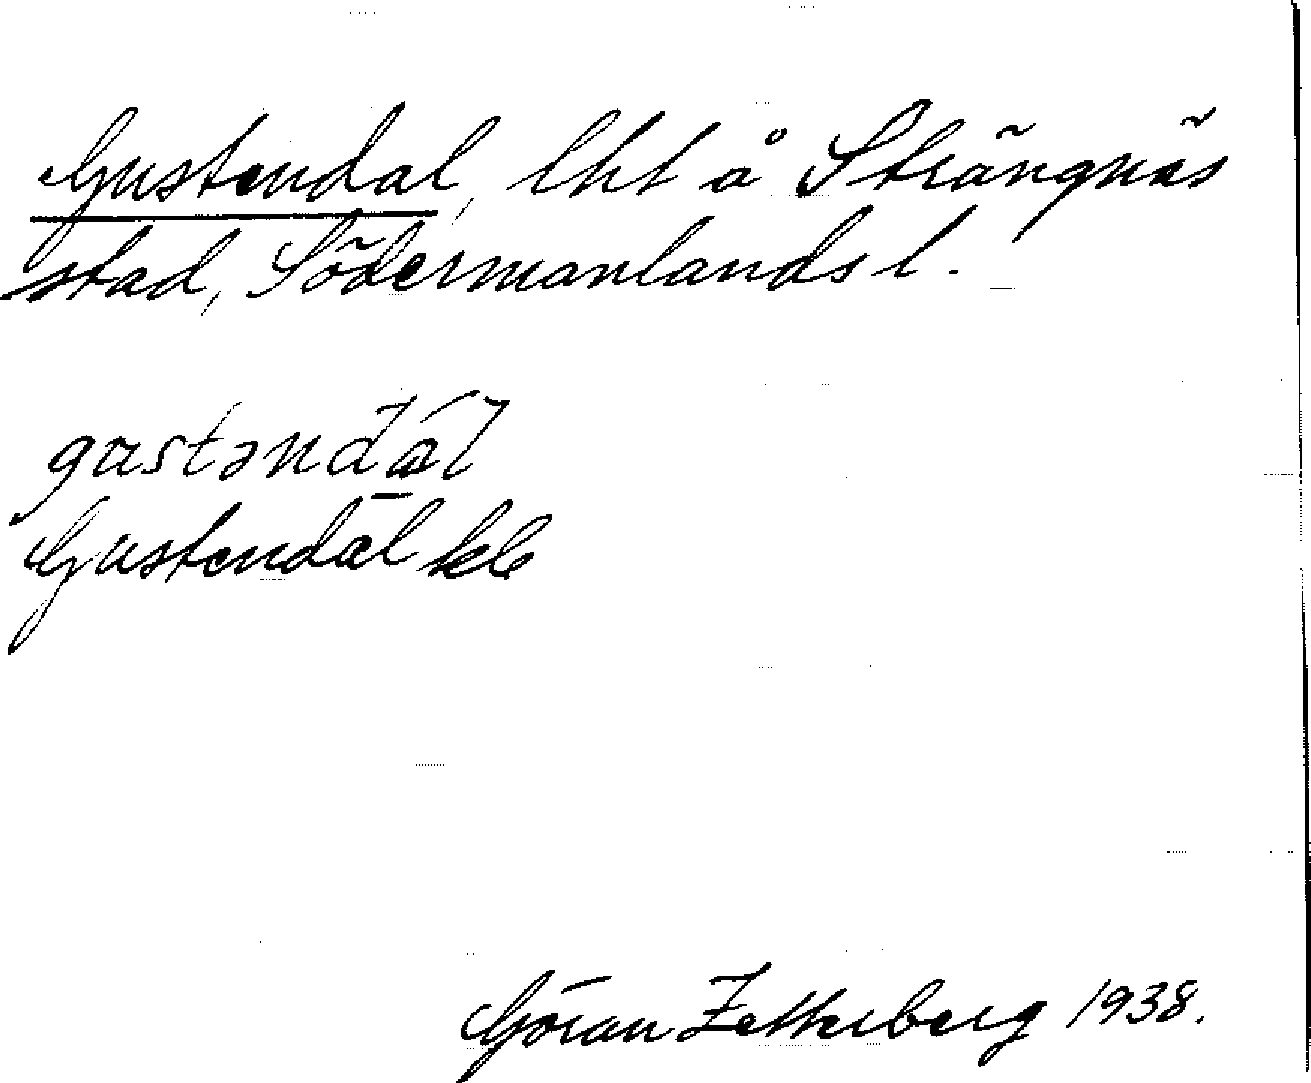 Gustendal, lht å Strängnäs
stad, Södermanlands l.
gustəndál
Gustendal
Göran Zetterberg 1938.